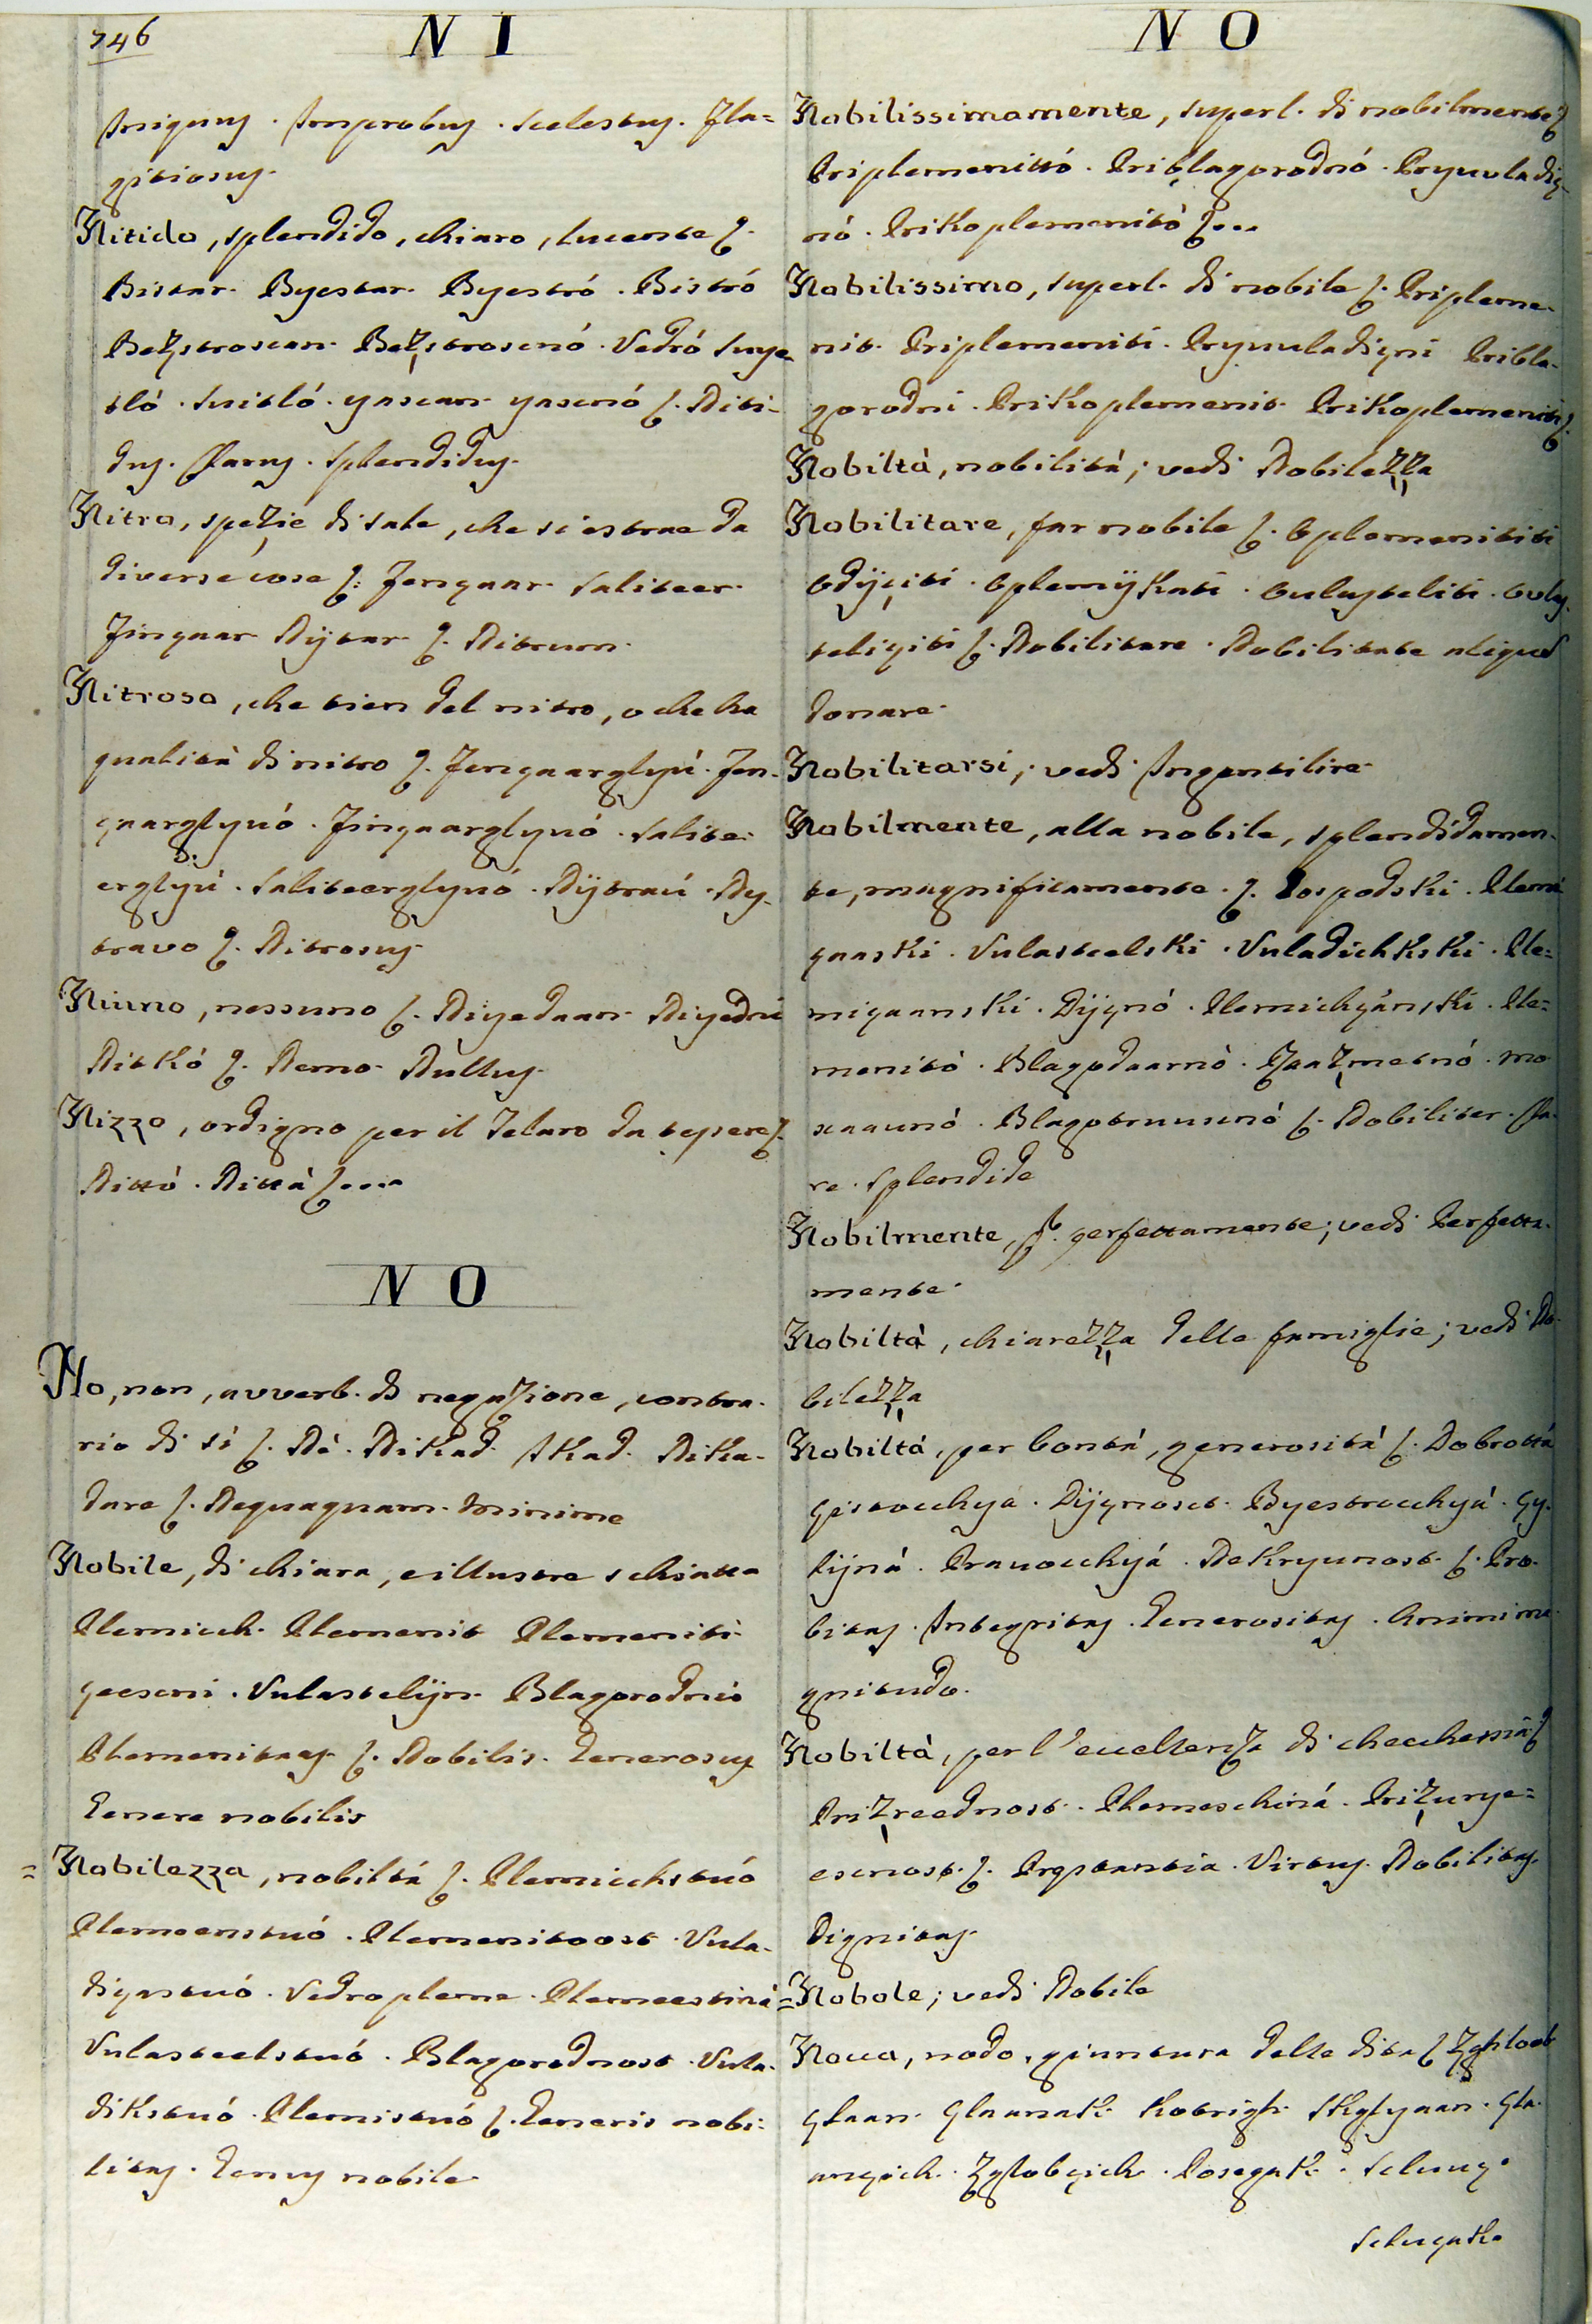 746
N I
Iniquus. Improbus. Scelestus. Fla=
gitiosus.
Nitido, splendido, chiaro, lucente ſ.
Bistar. Byestar. Byestró. Bistró
Beżstroscan. Beżstroscnó. Vedró Suye-
tló. Suitló. yascan. yascnó ſ. Niti-
dus. Clarus. Splendidus.
Nitro, spezie di sale, che si estrae da
diverse cose ſ. Jengaar. Saliteer.
Jingaar Nijtar ſ. Nitrum.
Nitroso, che tien del nitro, o che ha
qualità di nitro ſ. Jengaarglyú. Jen-
gaarglyuó. Jingaarglyuó. Salite-
erglyú. Saliteerglyuó. Nijtraú. Ny-
travo ſ. Nitrosus
Niuno, nessuno ſ. Niyedaan. Niyedni
Nitkó ſ. Nemo. Nullus.
Nizzo, ordigno per il Telaro da tessere ſ.
Nittó. Nittá ſ...
N O
No, non, avverb. di negazione, contra-
rio di sì ſ. Né. Nikad. Ikad. Nika-
dare ſ. Nequaquam. Minime
Nobile, di chiara, e illustre schiatta
Plemicch. Plemenit Plemeniti
Vulastelijn. Blagorodnió
ſ. Nobilis. Generosus
Genere nobilis
= Nobilezza, nobiltá ſ. Plemicchstuó
Plemenstuó. Plemenitoost. Vula-
diçastuó. Vedropleme. Plemeestiná
Vulasteelstuó. Blagorodnost. Vula-
dikstuó. Plemistuó ſ. Generis nobi-
litas. Genus nobile.
N O
Nobilissimamente, superl. di nobilmente ſ
Priplemenittó. Priblagorodnó. Pryuuladiç-
nó. Prikoplemenitó ſ...
Nobilissimo, superl. di nobile ſ.Ripleme-
nit. Priplemeniti. Pryuuladiçni Pribla-
gorodni. Prikoplemenit. Prikoplemeniti ſ.
Nobilità, nobilitá; vedi Nobilezza
Nobilitare, far nobile ſ. Oplemenititi
Odijçiti. Oplemijkati. Oulasteliti. Oula-
steliçiti ſ. Nobilitare. Nobilitate aliqud
donare.
Nobilitarsi; vedi Ingentilire.
Nobilmente, alla nobile, splendidamen-
te, magnificamente. ſ. Gospodski. Plemi
çaaski. Vulasteelski. Vuladichkski. Ple=
miçaanski. Dijçnó. Plemichyánski. Ple=
menitó. Blagodaarnó. Zaazmetnó. mo
xaaunó. ſ. Nobiliter. Cla-
re. Splendide
Nobilmente, p. perfettamente; vedi Perfetta-
mente.
Nobiltà, chiarezza delle famiglie; vedi No-
bilezza
Nobiltá, per bontá, generositá ſ. Dobrottá
çistocchya. Dijçnost. Byestrocchyá. Çy-
lijná. Prauocchyá. ſ. Pro-
bitas. Integritas. Generositas. Animi ma-
gnitudo.
Nobiltà, per l'eccellenza di checchessia ſ
Prizreednost. Plemeschiná. Prizurye=
escnost. ſ. Prestantia. Virtus. Nobilitas.
Dignitas.
= Nobole; vedi Nobile
Nocca, nodo, giuntura delle dita ſ Zghloob
Çlaan. Çlaanak. Kotrigh. Skglyaan. Çla-
ançich. Zglobçich. Poseçak.